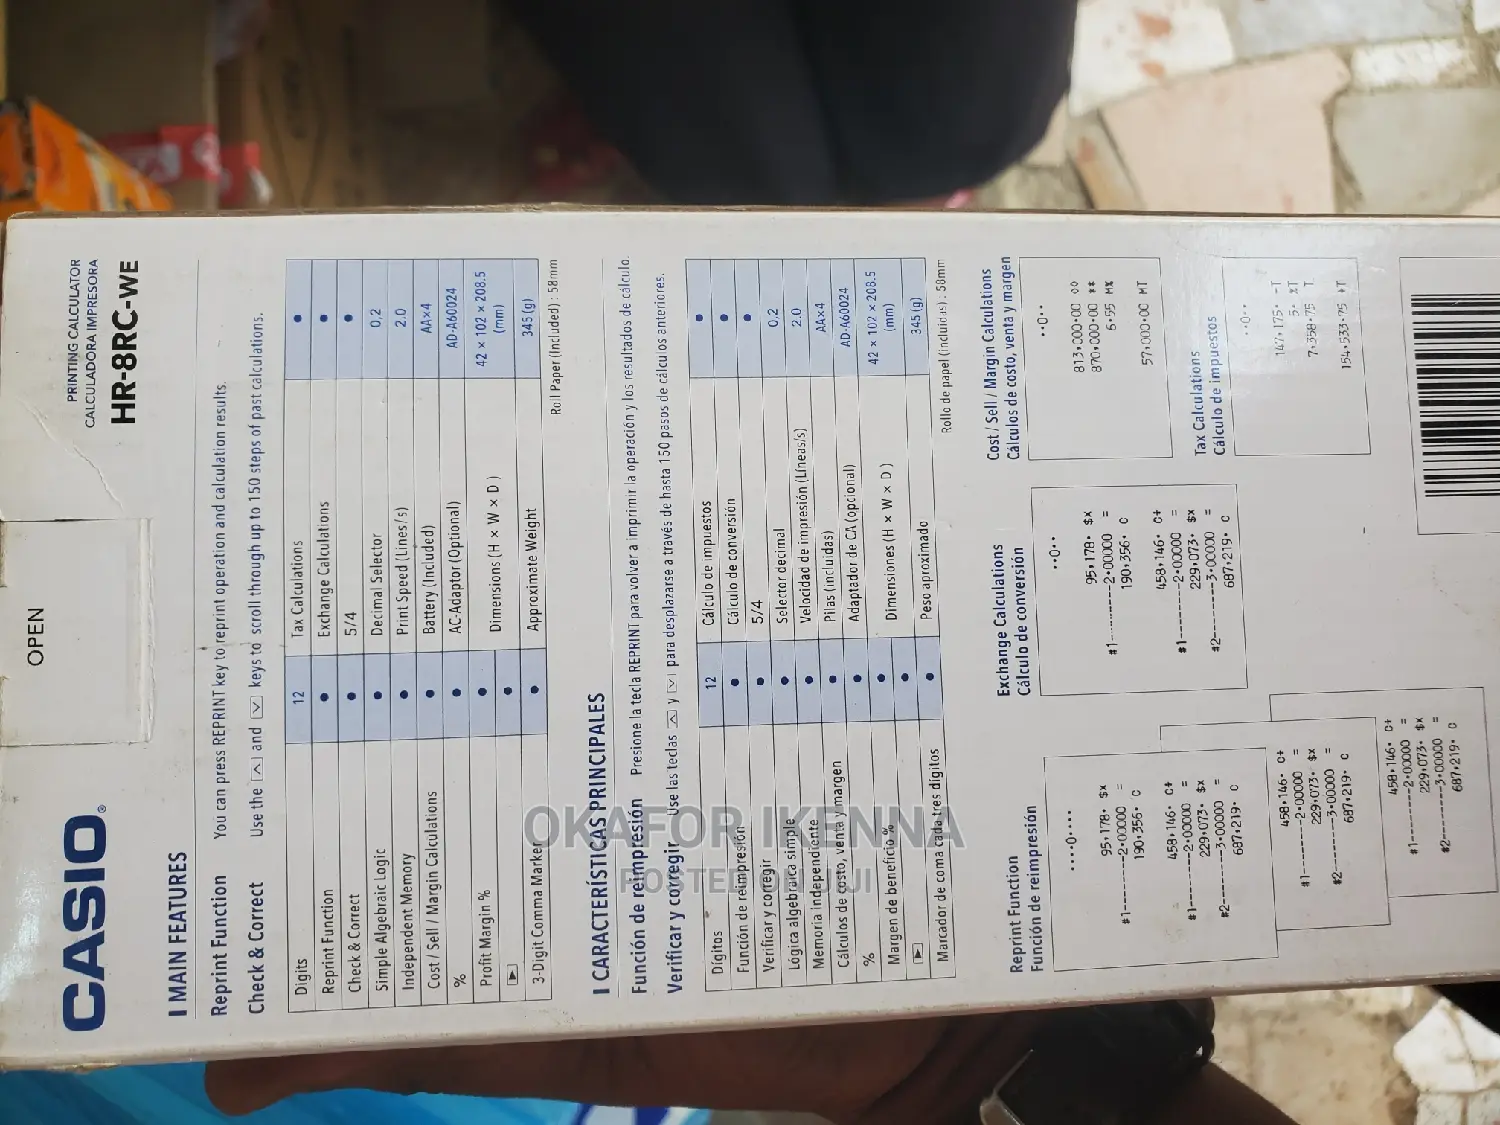 OPEN
CASIO®
PRINTING CALCULATOR
CALCULADORA IMPRESORA
HR-8RC-WE
MAIN FEATURES
Reprint Function You can press REPRINT key to reprint operation and calculation results.
Check & Correct Use the and keys to scroll through up to 150 steps of past calculations.
Digits 12 Tax Calculations •
Reprint Function • Exchange Calculations •
Check & Correct • 5/4 •
Simple Algebraic Logic • Decimal Selector 0,2
Independent Memory • Print Speed (Lines/s) 2.0
Cost / Sell / Margin Calculations • Battery (Included) AA×4
% • AC-Adaptor (Optional) AD-A60024
Profit Margin % • Dimensions (H × W × D) 42 × 102 × 208.5 (mm)
▶ •
3-Digit Comma Marker • Approximate Weight 345 (g)
Roll Paper (Included) : 58mm
CARACTERÍSTICAS PRINCIPALES
Función de reimpresión Presione la tecla REPRINT para volver a imprimir la operación y los resultados de cálculo.
Verificar y corregir Use las teclas y para desplazarse a través de hasta 150 pasos de cálculos anteriores.
Dígitos 12 Cálculo de impuestos •
Función de reimpresión • Cálculo de conversión •
Verificar y corregir • 5/4 •
Lógica algebraica simple • Selector decimal 0,2
Memoria independiente • Velocidad de impresión (Líneas/s) 2.0
Cálculos de costo, venta y margen • Pilas (incluidas) AA×4
% • Adaptador de CA (opcional) AD-A60024
Margen de beneficio % • Dimensiones (H × W × D) 42 × 102 × 208.5 (mm)
▶ •
Marcador de coma cada tres dígitos • Peso aproximado 345 (g)
Rollo de papel (incluidas) : 58mm
Reprint Function
Función de reimpresión
····0····
95,178· $x
#1----------2·00000 =
190,356· C
458,146· C+
#1----------2·00000 =
229,073· $x
#2----------3·00000 =
687,219· C
458,146· C+
#1----------2·00000 =
229,073· $x
#2----------3·00000 =
687,219· C
458,146· C+
#1----------2·00000 =
229,073· $x
#2----------3·00000 =
687,219· C
Exchange Calculations
Cálculo de conversión
··0··
95,178· $x
#1----------2·00000 =
190,356· C
458,146· C+
#1----------2·00000 =
229,073· $x
#2----------3·00000 =
687,219· C
Cost / Sell / Margin Calculations
Cálculos de costo, venta y margen
··0··
813,000·00 ◊◊
870,000·00 **
6·55 M%
57,000·00 MT
Tax Calculations
Cálculo de impuestos
··0··
147,175· -T
5· %T
7,358·75 T
154,533·75 +T
OKAFOR IKENNA
POSTED ON JIJI